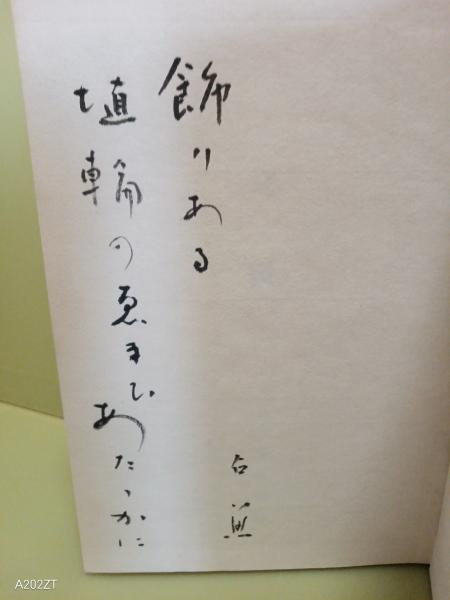 飾りある
埴輪のゑまひあたゝかに
占魚
A202ZT